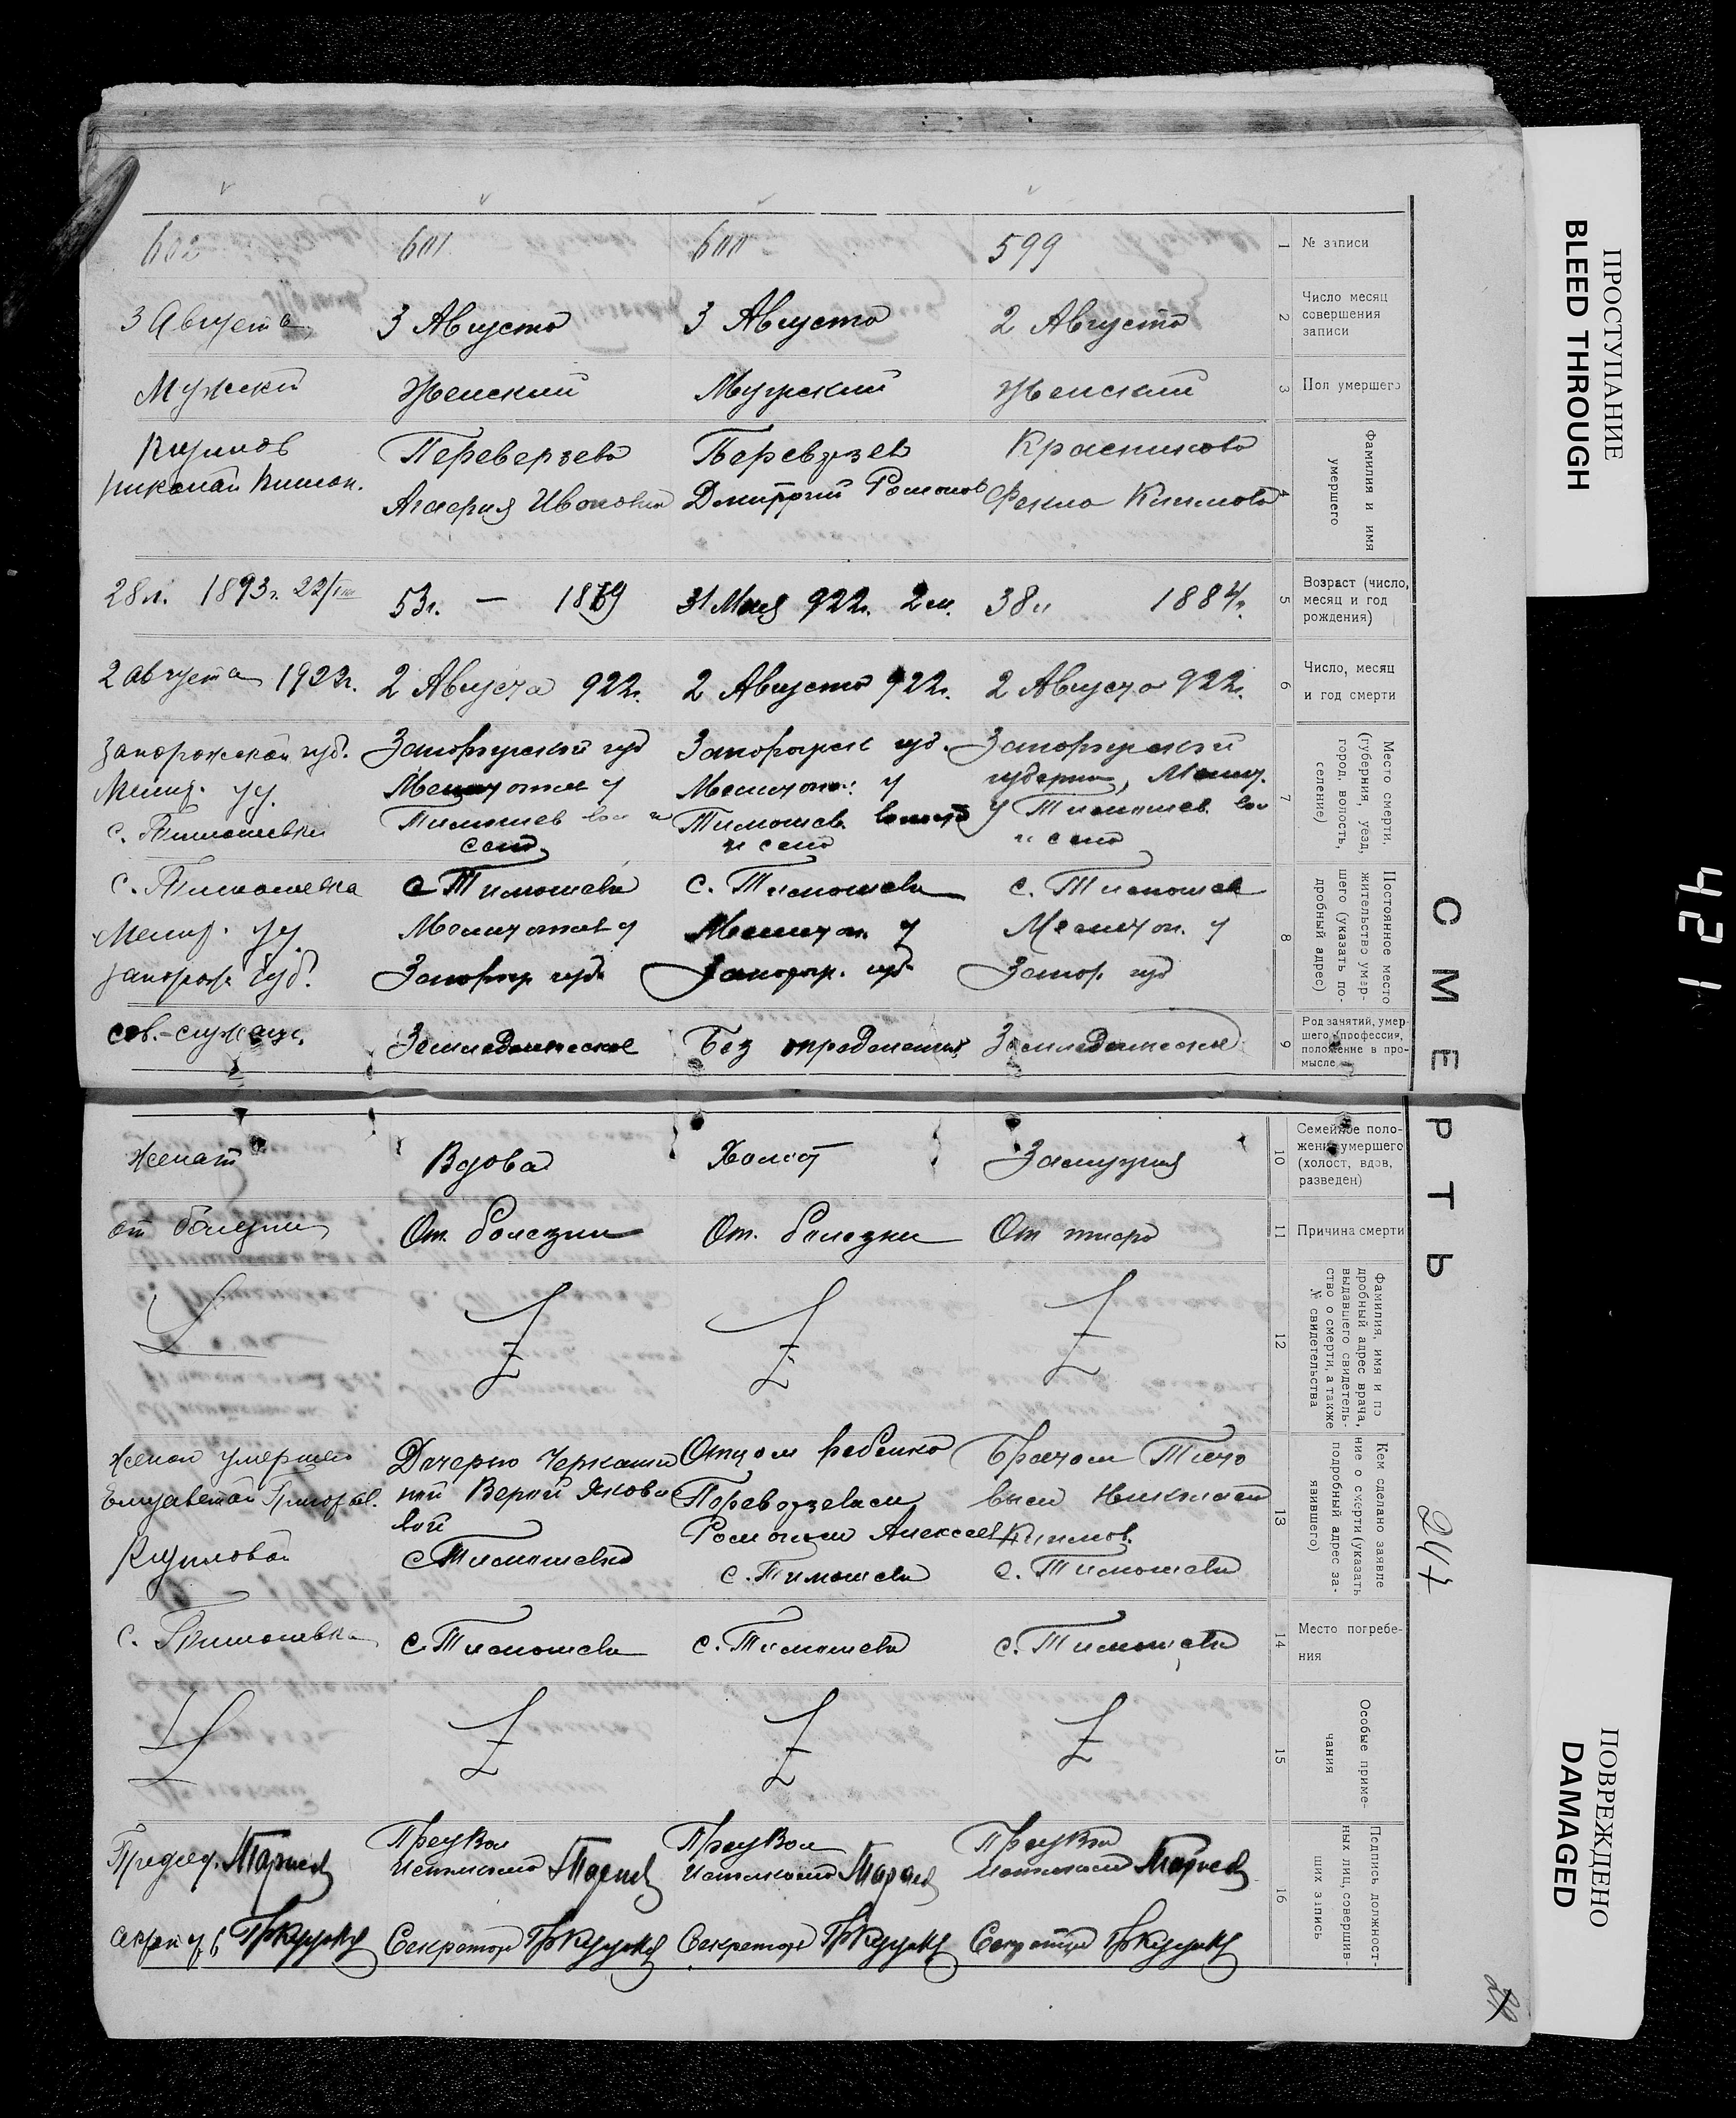 ПРОСТУПАНИЕ
BLED THROUGH
ПОВРЕЖДЕНО
DAMAGED
421
СМЕРТЬ
247
1
№ записи
599
600
601
602
2
Число месяц
совершения
записи
2 Августа
3 Августа
3 Августа
3 Августа
3
Пол умершего
Женский
Мужский
Женский
Мужской
4
Фамилия и имя
умершего
Красникова
Фекла Климова
Переверзев
Дмитрий Романов
Переверзева
Агафия Ивановна
Климов
Николай
5
Возраст (число,
месяц и год
рождения)
38 л 1884 г.
31 Мая 922 г. 2 м.
53 г. — 1869
28 л. 1893 г. 22/
6
Число, месяц
и год смерти
2 Августа 922 г.
2 Августа 922 г.
2 Августа 922 г.
2 августа 1922 г.
7
Место смерти,
(губерния, уезд,
город, волость,
селение)
Запорожский
губерни, Мелит.
у Тимошев. вол
и село
Запорожск губ.
Мелитоп. у
Тимошев. волость
и село
Запорожский губ
Мелитопол у
Тимошев вол и
село
Запорожской губ.
Мелит. уу.
с. Тимошевка
8
Постоянное место
жительство умер-
шего (указать по-
дробный адрес)
с. Тимошев
Мелитоп. у
Запор. губ
с. Тимошевка
Мелитоп. у
Запорож. губ.
с Тимошевка
Мелитопол у
Запорож губ.
с. Тимошевка
Мелит. уу.
Запорож. Губ.
9
Род занятий, умер-
шего (профессия,
положение в про-
мысле
Земледельческое
Без определения
Земледельческое
сов.-служащ.
10
Семейное поло-
жение умершего
(холост, вдов,
разведен)
Замужняя
Холост
Вдова
женат
11
Причина смерти
От
От. болезни
От. болезни
от болезни
12
Фамилия, имя и по
дробный адрес врача,
выдавшего свидетель-
ство о смерти, а также
№ свидетельства
Z
Z
Z
Z
13
Кем сделано заявле
ние о смерти (указать
подробный адрес за-
явившего)
Братом
Николаем
Климов.
с. Тимошевка
Отцом ребенка
Переверзевым
Романом Алексеев
с. Тимошевка
Дочерью Черкаши
ной Верой Яковле
вой
с Тимошевка
женой умершего
Елизаветой Григорьев.
Климовой
14
Место погребе-
ния
с. Тимошевка
с. Тимошевка
с. Тимошевка
с. Тимошевка
15
Особые приме-
чания
Z
Z
Z
Z
16
Подпись должност-
ных лиц, совершив-
ших запись
Пред Вол
Исполкома
Секретарь
Пред Вол
Исполкома
Секретарь
Пред Вол
Исполкома
Секретарь
Председ.
секретарь